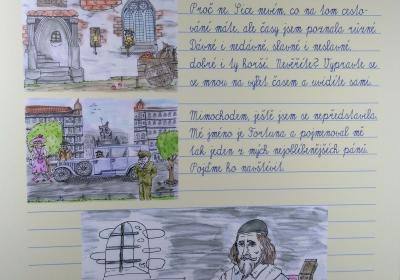 Proč ne. Sice nevím, co na tom cesto-
vání máte, ale časy jsem poznala různé.
Dávné i nedávné, slavné i neslavné,
dobré i ty horší. Nevěříte? Vypravte se
se mnou na výlet časem a uvidíte sami.
Mimochodem, ještě jsem se nepředstavila.
Mé jméno je Fortuna a pojmenoval mě
tak jeden z mých nejoblíbenějších pánů.
Pojďme ho navštívit.